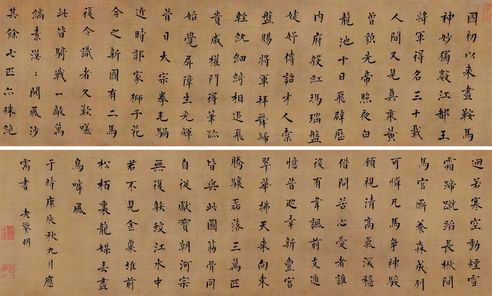 國初以來畫鞍馬
神妙獨數江都王
將軍得名三十載
人間又見真乘黃
曾貌先帝照夜白
龍池十日飛霹靂
內府殷紅瑪瑙盤
婕妤傳詔才人索
盤賜將軍拜舞歸
輕紈細綺相追飛
貴戚權門得筆跡
始覺屏障生光輝
昔日太宗拳毛騧
近時郭家獅子花
今之新圖有二馬
復令識者久歎嗟
此皆騎戰一敵萬
縞素漠漠開風沙
其餘七匹亦殊絕
迥若寒空動煙雪
霜蹄蹴踏長楸間
馬官廝養森成列
可憐九馬爭神駿
顧視清高氣深穩
借問苦心愛者誰
後有韋諷前支遁
憶昔巡幸新豐宮
翠華拂天來向東
騰驤磊落三萬匹
皆與此圖筋骨同
自從獻寶朝河宗
無復射蛟江水中
君不見金粟堆前
松柏裏龍媒去盡
鳥呼風
于時庚戌秋九月應
需書